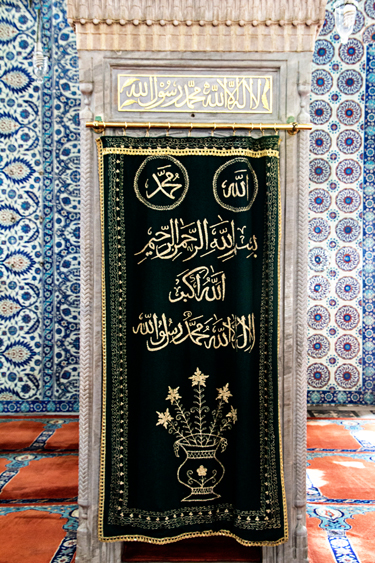 لا اله الا الله محمد رسول الله
الله محمد
بسم الله الرحمن الرحيم
الله اكبر
لا اله الا الله محمد رسول الله